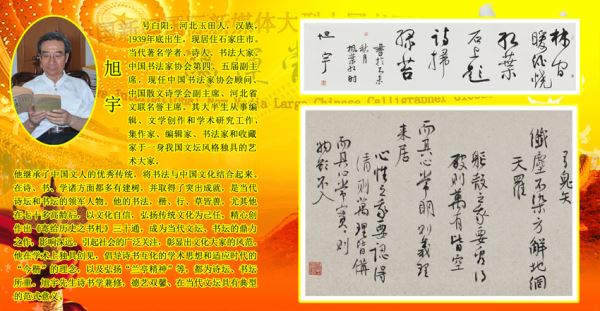 旭宇
号白阳，河北玉田人，汉族，
1939年底出生，现居住石家庄市。
当代著名学者、诗人、书法大家，
中国书法家协会第四、五届副主
席，现任中国书法家协会顾问、
中国散文诗学会副主席、河北省
文联名誉主席。其大半生从事编
辑、文学创作和学术研究工作，
集作家、编辑家、书法家和收藏
家于一身我国文坛风格独具的艺
术大家。
他继承了中国文人的优秀传统，将书法与中国文化结合起来，
在诗、书、学诸方面都多有建树，并取得了突出成就，是当代
诗坛和书坛的领军人物。他的书法，楷、行、草皆善，尤其他
在七十多高龄后，以文化自信、弘扬传统文化为己任，精心创
作出《寄给历史之书札》三十通，成为当代文坛、书坛的鼎力
之作，影响深远，引起社会的广泛关注，彰显出文化大家的风范。
他在学术上独具创见，倡导诗书互化的学术思想和适应时代的
“今楷”的理念，以及弘扬“兰亭精神”等，都为诗坛、书坛
所重。旭宇先生诗书学兼修，德艺双馨，在当代文坛具有典型
的范式意义。
林间
暖酒
红叶
石上题
诗扫
绿苔
旭宇
纤尘不染方解地网
天罗
躯壳之我要看得
破则万有皆空
而其心常朗则义理
来居
心性之我要认得
清则万理皆备
而其心常实则
物欲不入